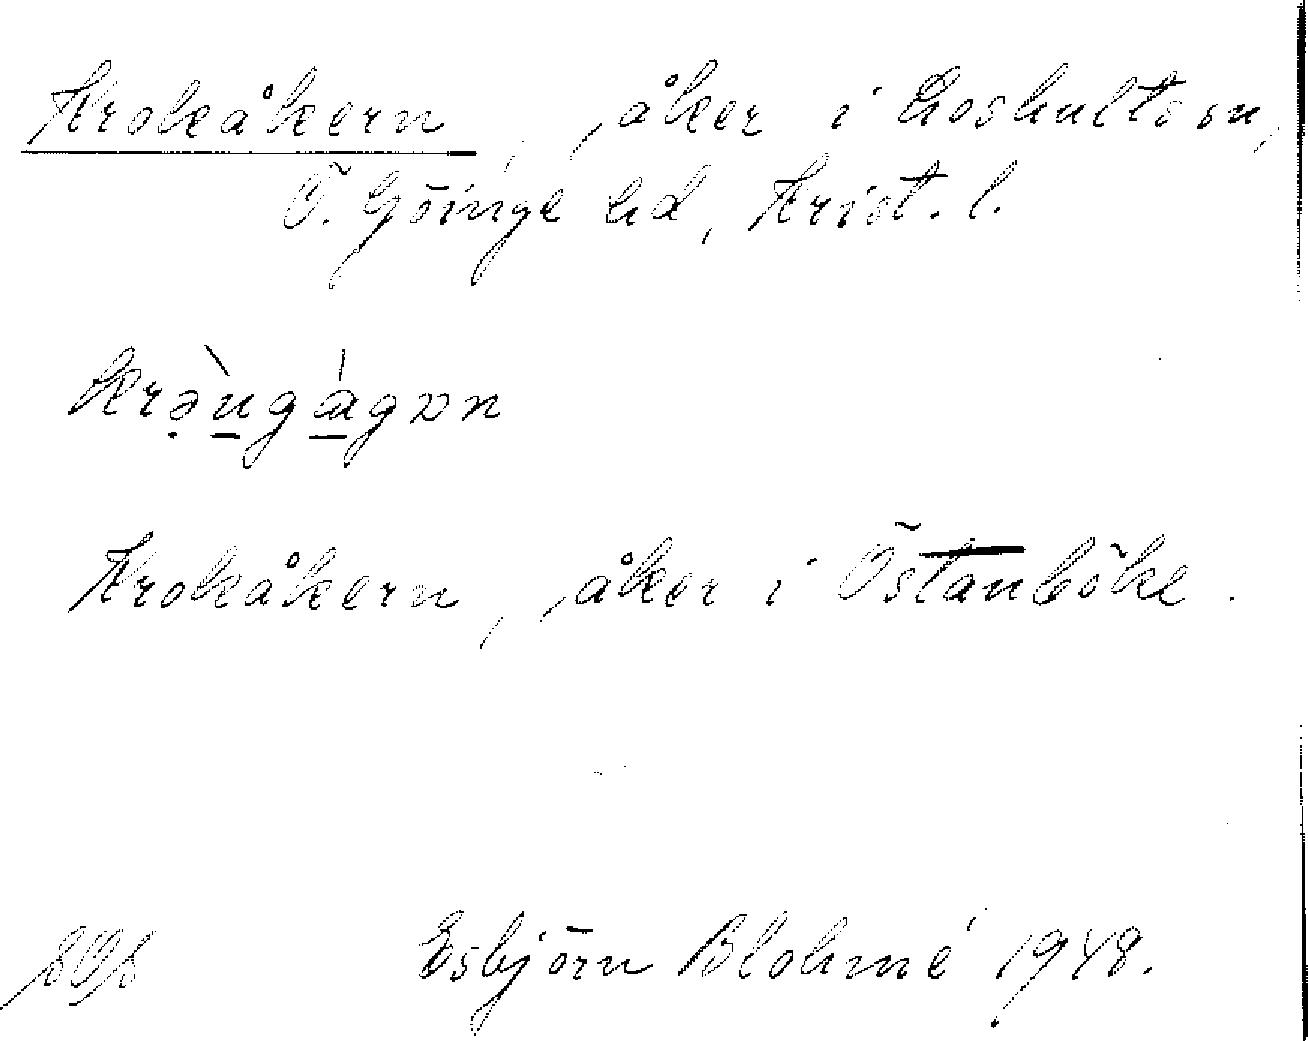 Krokåkern, åker i Loshults sn,
Ö. Göinge hd, Krist. l.
Krokåkern, åker i Östanböke.
Esbjörn Blohmé 1948.